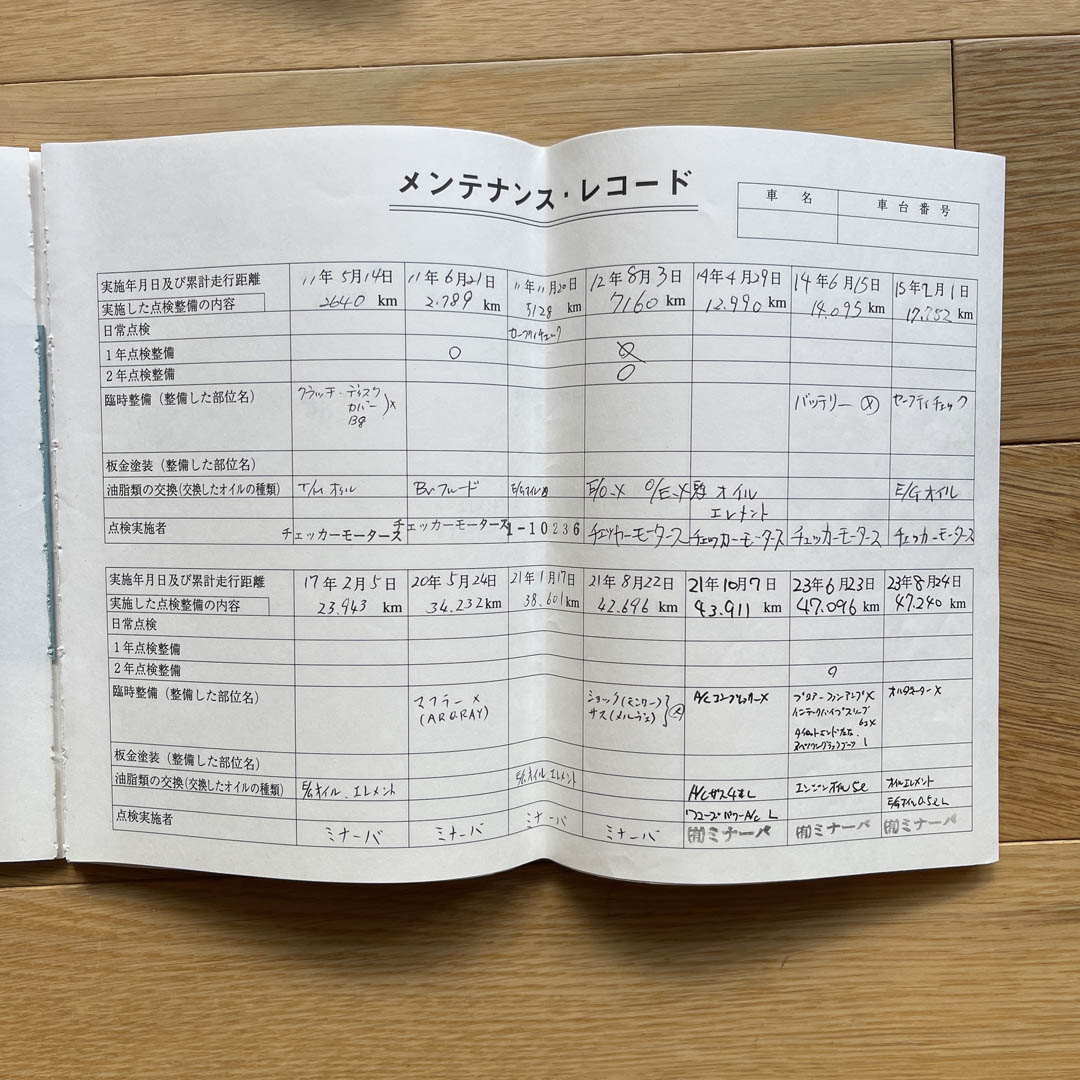 メンテナンス・レコード
車名 車台番号
実施年月日及び累計走行距離 11年5月14日 11年6月21日 11年11月20日 12年8月3日 14年4月29日 14年6月15日 15年2月1日
実施した点検整備の内容 2640 km 2.789 km 5128 km 7160 km 12.990 km 14.095 km km
日常点検 セーフティチェック
1年点検整備 ○
2年点検整備 ○
臨時整備(整備した部位名) クラッチ・ディスク バッテリー ㋱ セーフティチェック
カバー ×
板金塗装(整備した部位名)
油脂類の交換(交換したオイルの種類) T/M オイル フルード E/Gオイル E/O-× O/E-× オイル E/Gオイル
エレメント
点検実施者 チェッカーモータース チェッカーモータース 1-10236 チェッカーモータース チェッカーモータース チェッカーモータース チェッカーモータース
実施年月日及び累計走行距離 17年2月5日 20年5月24日 21年1月17日 21年8月22日 21年10月7日 23年6月23日 23年8月24日
実施した点検整備の内容 23.943 km 34.232 km 38.601 km 42.696 km 43.911 km 47.096 km 47.240 km
日常点検
1年点検整備
2年点検整備 ○
臨時整備(整備した部位名) マフラー × ショック(モンロー) A/Cコンプレッサー× オルタネーター×
(ARQRAY) サス(メルヴェ)
板金塗装(整備した部位名)
油脂類の交換(交換したオイルの種類) E/Gオイル.エレメント E/Gオイル.エレメント A/Cガス4本L エンジンオイル5L オイルエレメント
E/Gオイル0.5L L
点検実施者 ミナーバ ミナーバ ミナーバ ミナーバ (有)ミナーバ (有)ミナーバ (有)ミナーバ